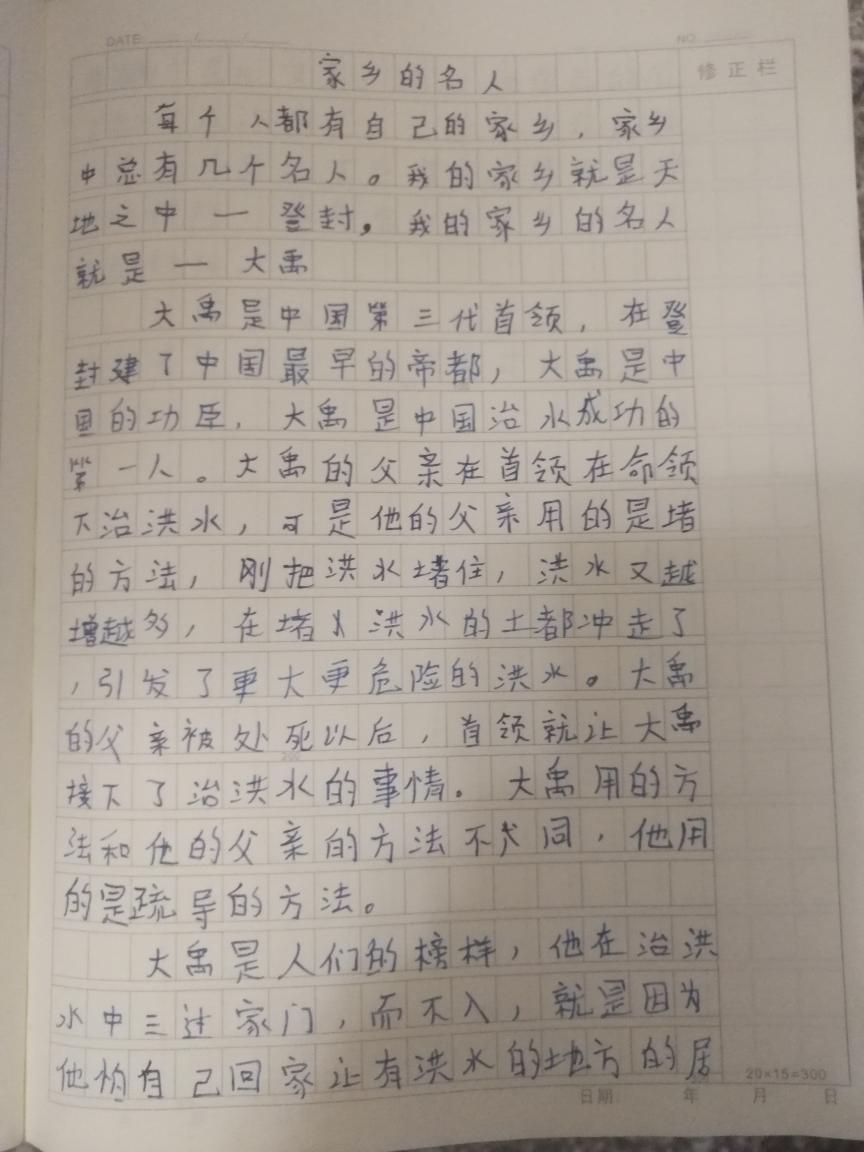 DATE / /
NO
修正栏
家乡的名人
每个人都有自己的家乡，家乡
中总有几个名人。我的家乡就是天
地之中一登封，我的家乡的名人
就是一大禹
大禹是中国第三代首领，在登
封建了中国最早的帝都，大禹是中
国的功臣，大禹是中国治水成功的
第一人。大禹的父亲在首领在命领
下治洪水，可是他的父亲用的是堵
的方法，刚把洪水堵住，洪水又越
增越多，在堵洪水的土都冲走了
，引发了更大更危险的洪水。大禹
的父亲被处死以后，首领就让大禹
接下了治洪水的事情。大禹用的方
法和他的父亲的方法不同，他用
的是疏导的方法。
大禹是人们的榜样，他在治洪
水中三过家门，而不入，就是因为
他怕自己回家让有洪水的地方的居
20×15=300
日期 年 月 日